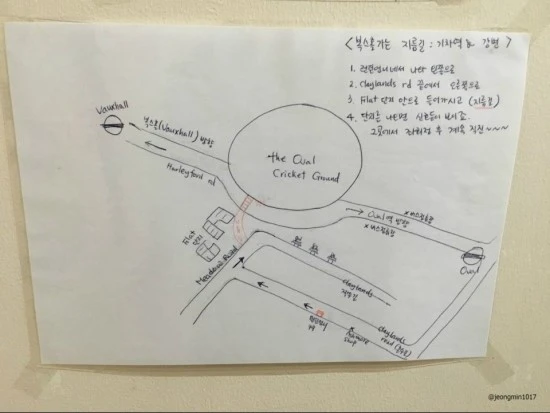 <복스홀가는 지름길 : 기차역 & 강변>
1. 민박집에서 나와 왼쪽으로
2. Claylands rd 끝에서 오른쪽으로
3. Flat 단지 안으로 들어가시고 (지름길)
4. 단지를 나오면 신호등이 보시요.
그곳에서 좌회전 후 계속 직진~~~~
Vauxhall
복스홀(Vauxhall) 방향
Harleyford rd
the Oval
Cricket Ground
Oval역 방향
x 버스정류장
x 버스정류장
Oval
Flat
단지
Meadow Road
Claylands
지름길
Claylands
road
shop
@jeongmin1017